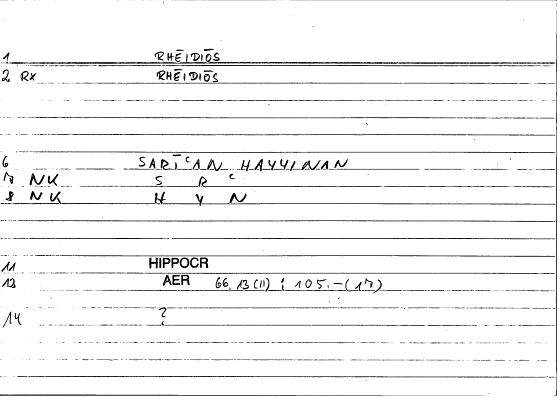 1 RHĒIDIŌS
2 RX RHĒIDIŌS
6 SARĪʿAN HAYYINAN
7 NK S R ʿ
8 NK H Y N
11 HIPPOCR
13 AER 66,13(11) ; 105.-(17)
14 ?